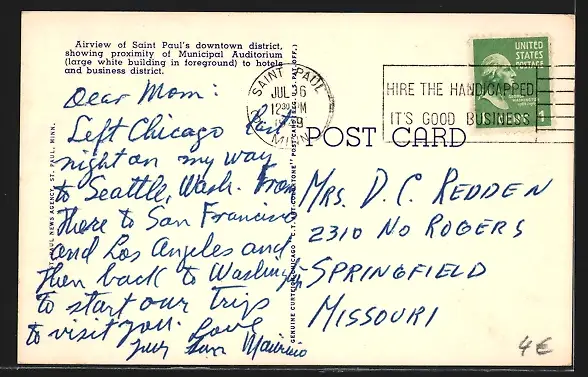 Airview of Saint Paul's downtown district,
showing proximity of Municipal Auditorium
(large white building in foreground) to hotels
and business district.
Dear Mom:
Left Chicago last
night on my way
to Seattle, Wash. From
there to San Francisco
and Los Angeles and
then back to Washington
to start our trip
to visit you. Love
your son Maurice
PAUL NEWS AGENCY, ST. PAUL, MINN.
GENUINE CURTEICH-CHICAGO "C.T. ART-COLORTONE" POST CARD (REG. U.S. PAT. OFF.)
SAINT PAUL
JUL 6
12 30 PM
MINN
HIRE THE HANDICAPPED
IT'S GOOD BUSINESS
UNITED
STATES
POSTAGE
WASHINGTON
1
POST CARD
MRS. D. C. REDDEN
2310 NO ROGERS
SPRINGFIELD
MISSOURI
4€